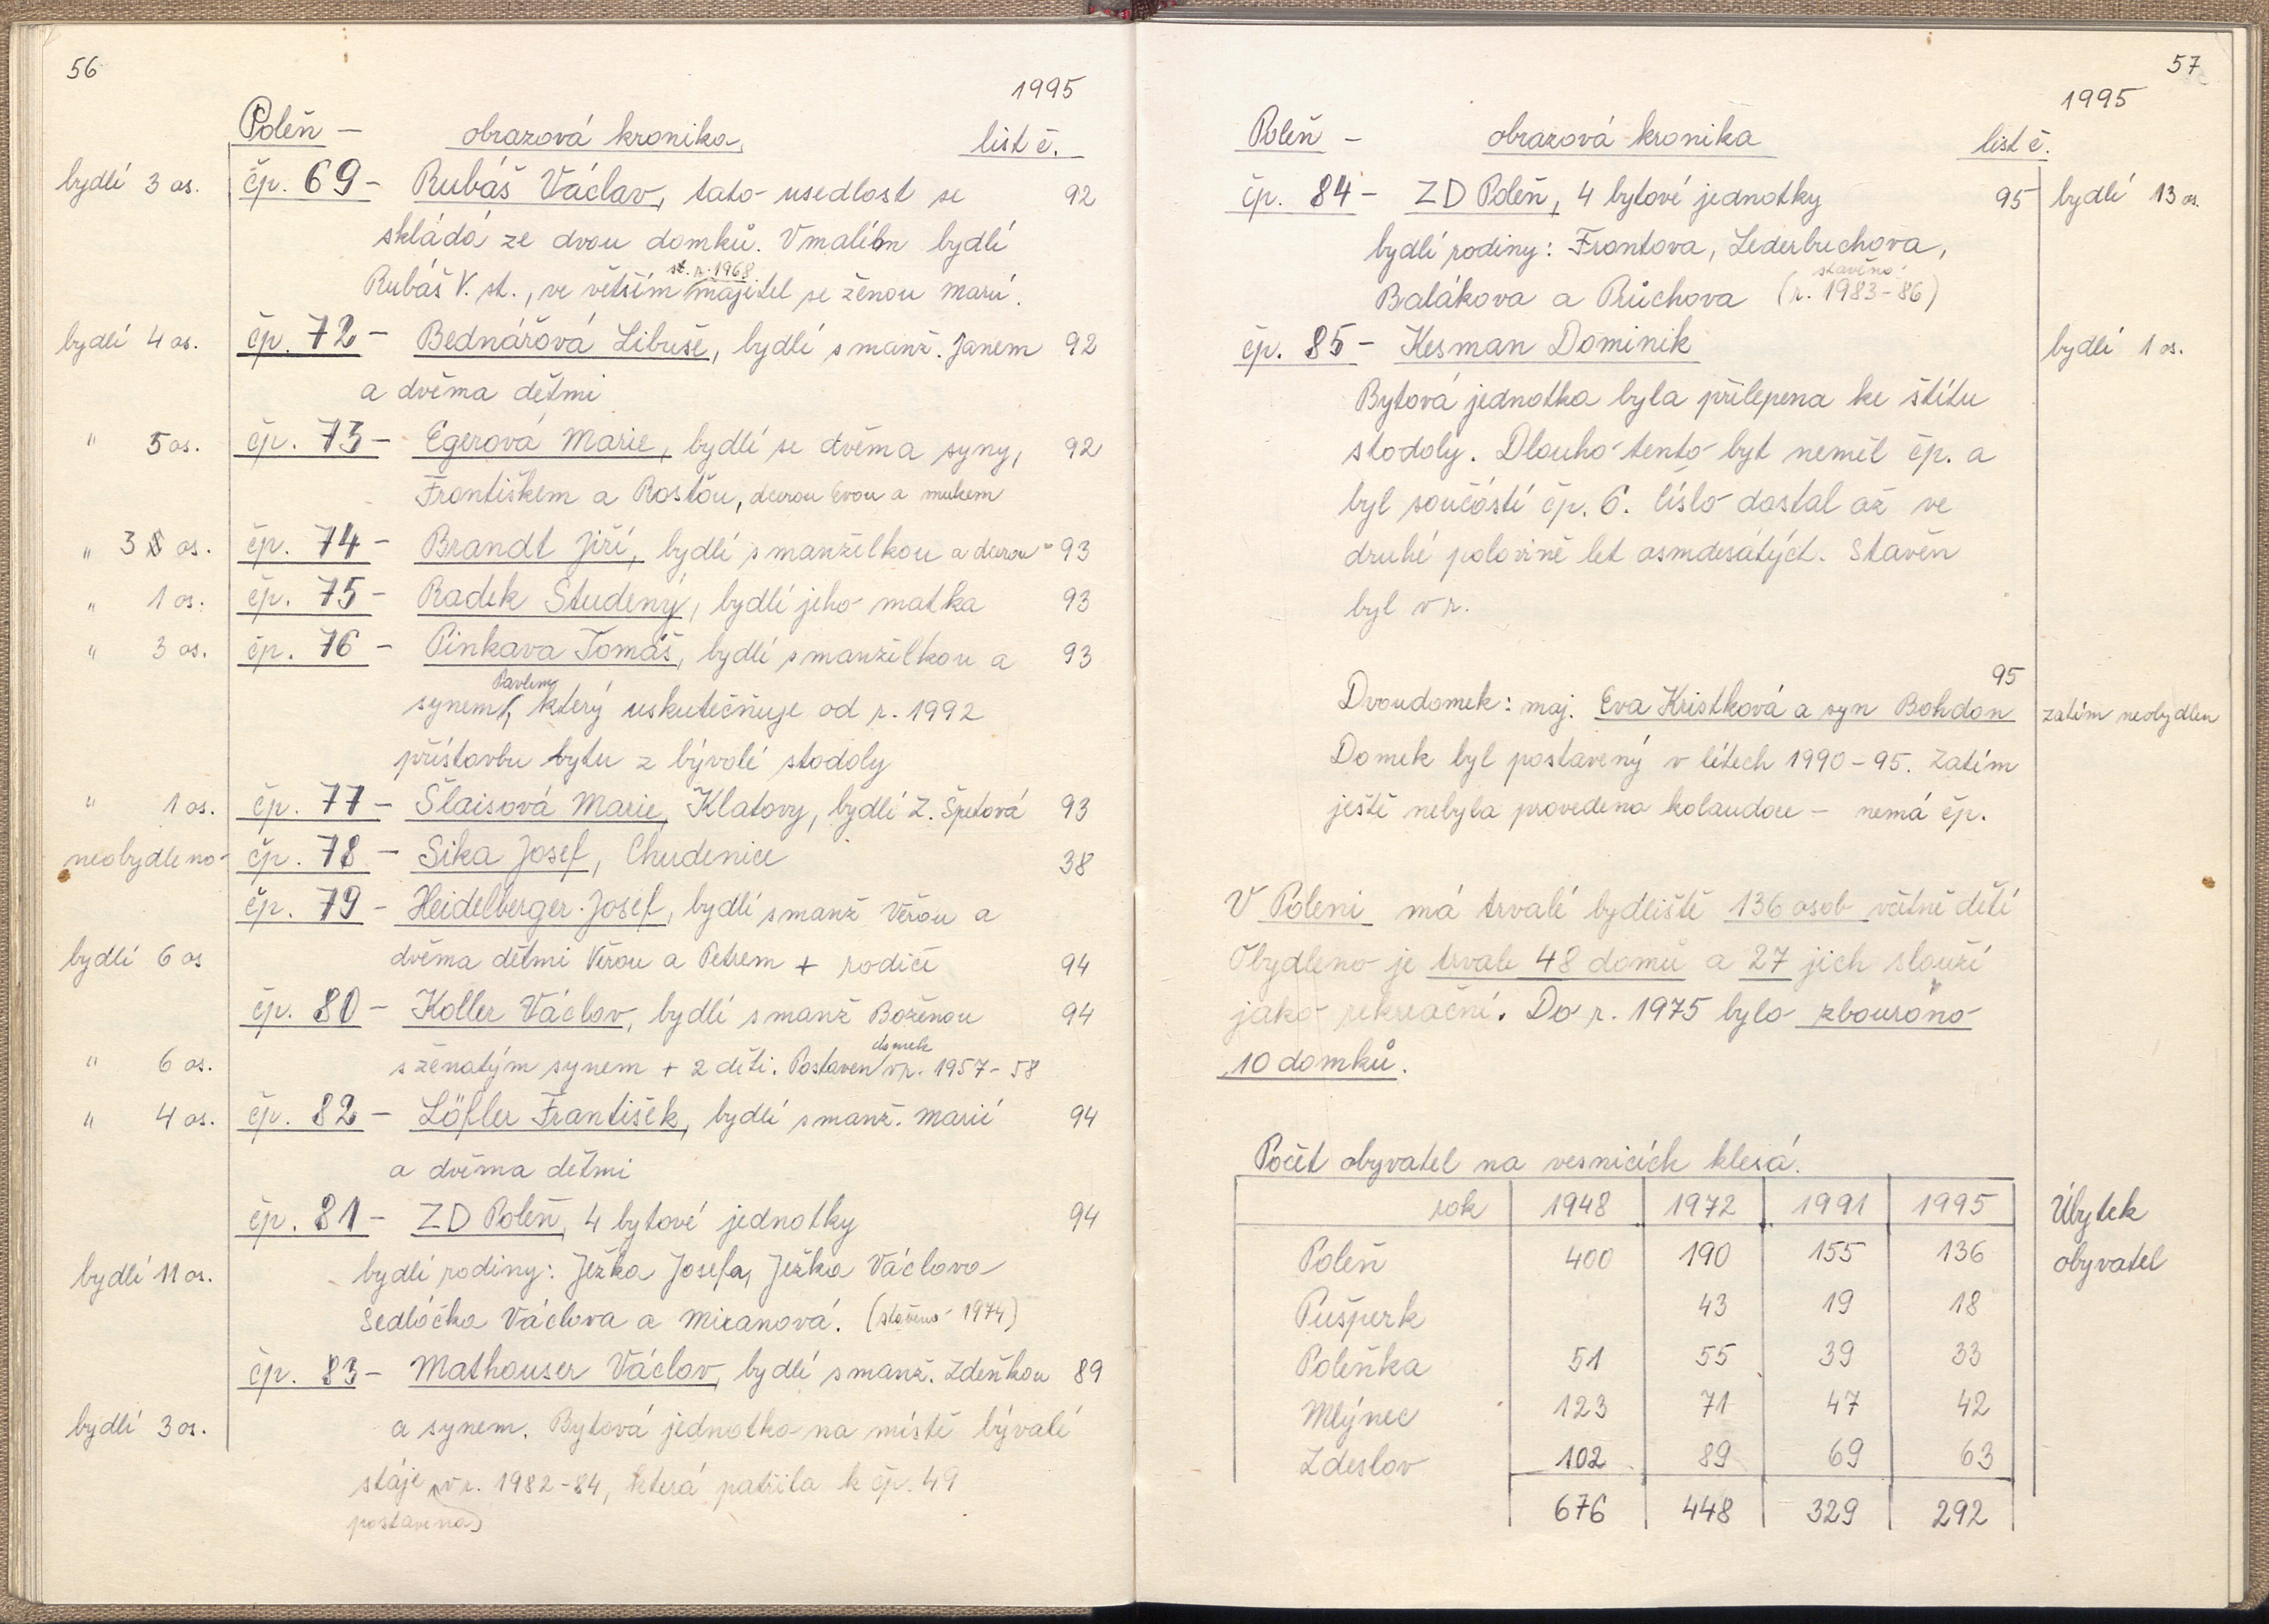 56
1995
Poleň — obrazová kronika, list č.
bydlí 3 os. čp. 69 - Rubáš Václav, tato usedlost se 92
skládá ze dvou domků. V malém bydlí
st. r. 1968
Rubáš V. st., ve větším majitel se ženou Marií.
bydlí 4 os. čp. 72 - Bednářová Libuše, bydlí s manž. Janem 92
a dvěma dětmi
" 5 os. čp. 73 - Egerová Marie, bydlí se dvěma syny, 92
Františkem a Rosťou, dcerou Evou a mužem
" 3 os. čp. 74 - Brandt Jiří, bydlí s manželkou a dcerou 93
" 1 os. čp. 75 - Radek Studený, bydlí jeho matka 93
" 3 os. čp. 76 - Pinkava Tomáš, bydlí s manželkou a 93
Pavlem
synem, který uskutečňuje od r. 1992
přístavbu bytu z bývalé stodoly
" 1 os. čp. 77 - Šlaisová Marie, Klatovy, bydlí Z. Špetová 93
neobydleno čp. 78 - Sika Josef, Chudenice 38
čp. 79 - Heidelberger Josef, bydlí s manž Věrou a
bydlí 6 os dvěma dětmi Věrou a Petrem + rodiče 94
čp. 80 - Koller Václav, bydlí s manž Boženou 94
domek
" 6 os. s ženatým synem + 2 děti. Postaven v r. 1957-58
" 4 os. čp. 82 - Löfler František, bydlí s manž. Marií 94
a dvěma dětmi
čp. 81 - ZD Poleň, 4 bytové jednotky 94
bydlí 11 os. bydlí rodiny: Ježka Josefa, Ježka Václava
Sedláčka Václava a Mixanová. (stavěno 1974)
čp. 83 - Mathauser Václav, bydlí s manž. Zdeňkou 89
bydlí 3 os. a synem. Bytová jednotka na místě bývalé
stáje v r. 1982-84, která patřila k čp. 49
postavena
57
1995
Poleň - obrazová kronika list č.
čp. 84 - ZD Poleň, 4 bytové jednotky 95 bydlí 13 os.
bydlí rodiny: Frantova, Lederbuchova,
stavěno
Balákova a Průchova (r. 1983-86)
čp. 85 - Kesman Dominik bydlí 1 os.
Bytová jednotka byla přilepena ke štítu
stodoly. Dlouho tento byt neměl čp. a
byl součástí čp. 6. Číslo dostal až ve
druhé polovině let osmdesátých. Stavěn
byl v r.
95
Dvoudomek: maj. Eva Kristková a syn Bohdan zatím neobydlen
Domek byl postavený v létech 1990-95. Zatím
ještě nebyla provedena kolaudace - nemá čp.
V Poleni má trvalé bydliště 136 osob včetně dětí
Obydleno je trvale 48 domů a 27 jich slouží
jako rekreační. Do r. 1975 bylo zbouráno
10 domků.
Počet obyvatel na vesnicích klesá.
rok 1948 1972 1991 1995 Úbytek
Poleň 400 190 155 136 obyvatel
Pušperk 43 19 18
Poleňka 51 55 39 33
Mlýnec 123 71 47 42
Zdeslav 102 89 69 63
676 448 329 292